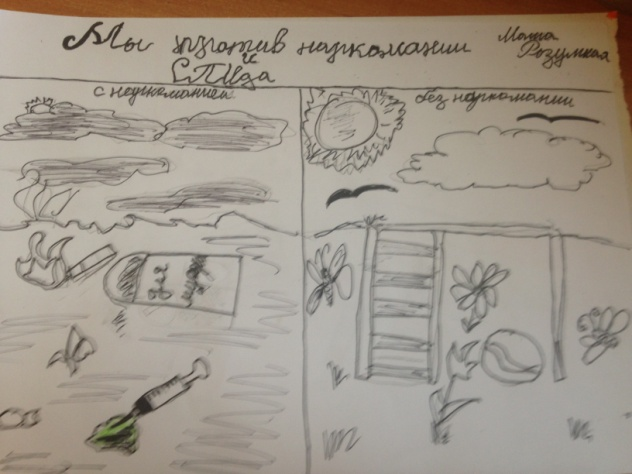 Мы против наркомании
и
СПИДа
Маша
Розумная
с наркоманией
без наркомании
Для
мусора